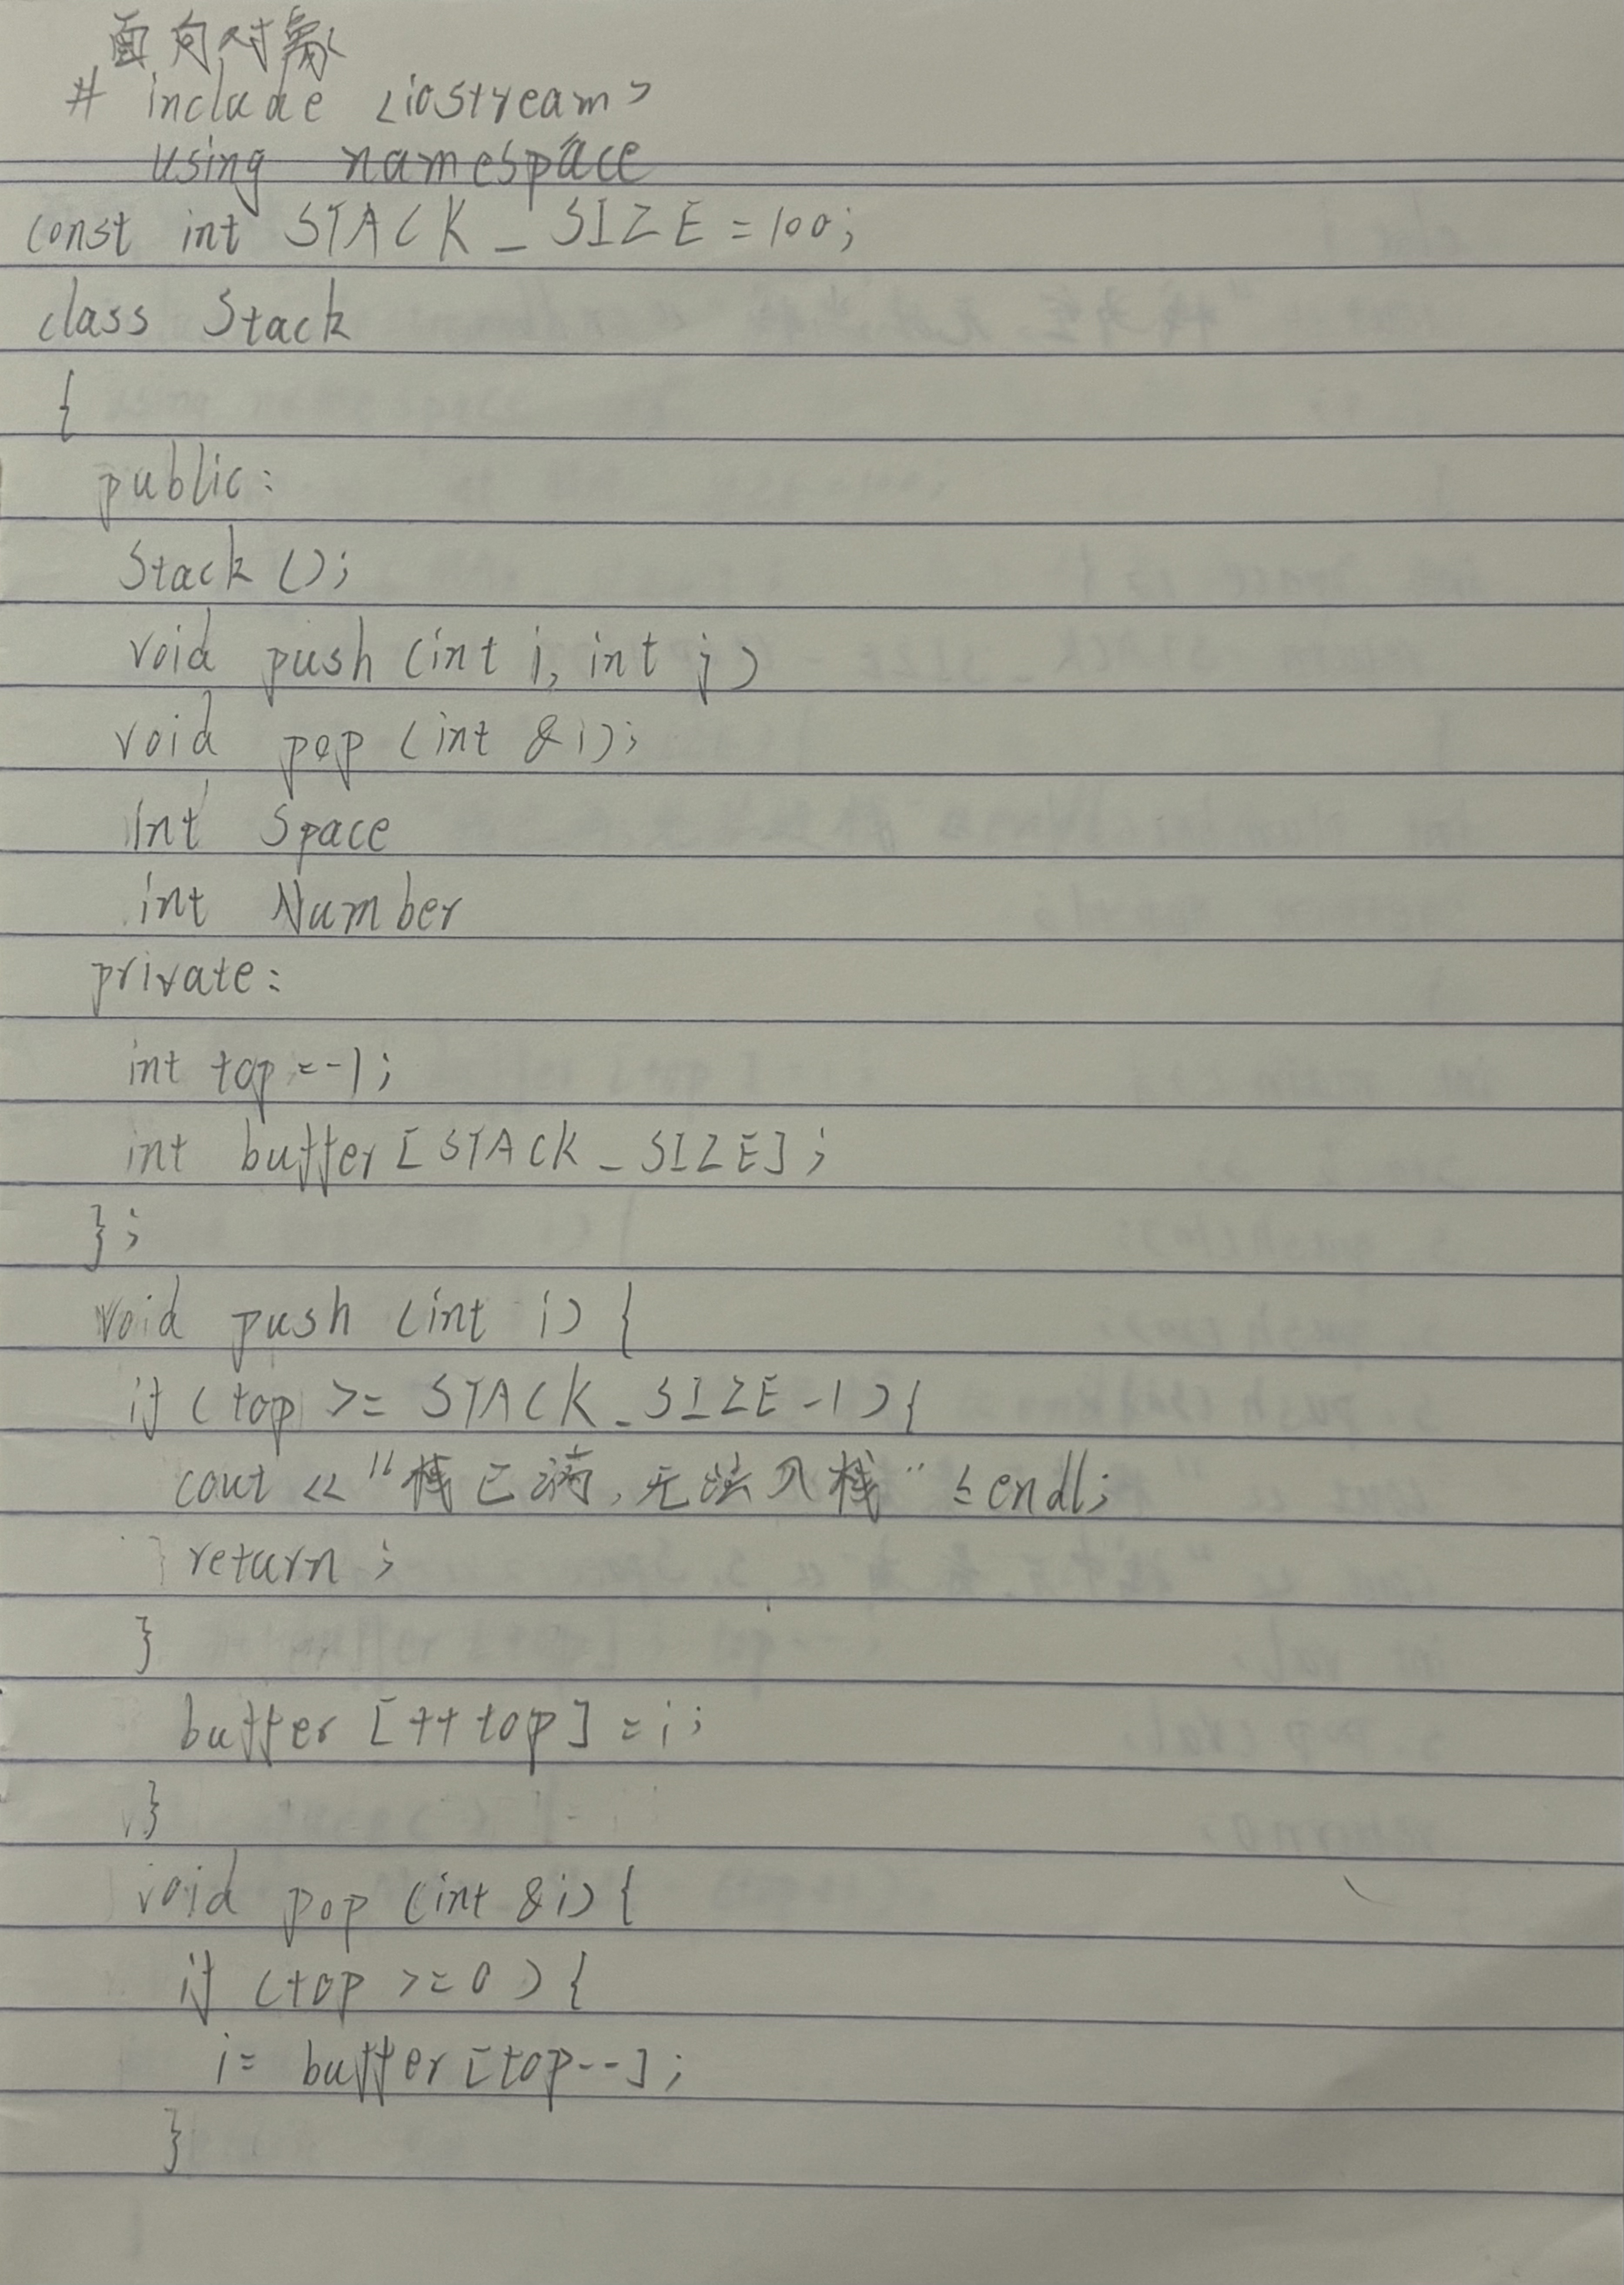 面向对象
# include <iostream>
using namespace
const int STACK_SIZE=100;
class Stack
{
public:
Stack();
void push (int i, int j)
void pop (int &i);
int Space
int Number
private:
int top=-1;
int buffer[STACK_SIZE];
};
void push (int i) {
if (top >= STACK_SIZE-1){
cout << "栈已满,无法入栈" << endl;
return ;
}
buffer [++top] =i;
}
void pop (int &i){
if (top >=0) {
i= buffer[top--];
}